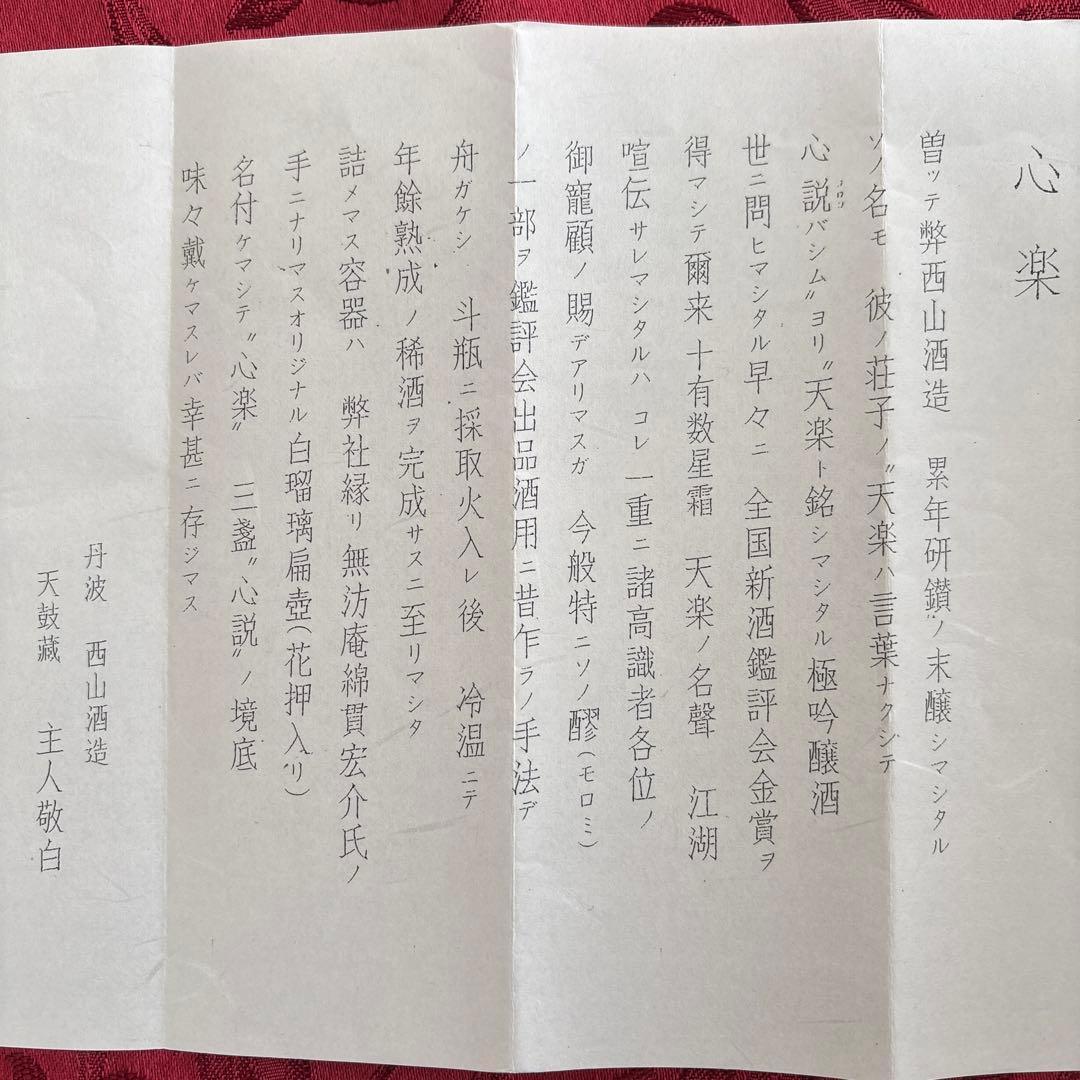 心楽
曽ッテ弊西山酒造 累年研鑚ノ末醸シマシタル
ソノ名モ 彼ノ荘子ノ〝天楽ハ言葉ナクシテ
心説バシム〟ヨリ〝天楽〟ト銘シマシタル極吟醸酒
世ニ問ヒマシタル早々ニ 全国新酒鑑評会金賞ヲ
得マシテ爾来十有数星霜 天楽ノ名聲 江湖
喧伝サレマシタルハ コレ一重ニ諸高識者各位ノ
御寵顧ノ賜デアリマスガ 今般特ニソノ醪(モロミ)
ノ一部ヲ鑑評会出品酒用ニ昔乍ラノ手法デ
舟ガケシ 斗瓶ニ採取火入レ後 冷温ニテ
年餘熟成ノ稀酒ヲ完成サスニ至リマシタ
詰メマス容器ハ 弊社縁リ無汸庵綿貫宏介氏ノ
手ニナリマスオリジナル白瑠璃扁壺(花押入リ)
名付ケマシテ〝心楽〟 三盞〝心説〟ノ境底
味々戴ケマスレバ幸甚ニ存ジマス
丹波 西山酒造
天鼓藏 主人敬白